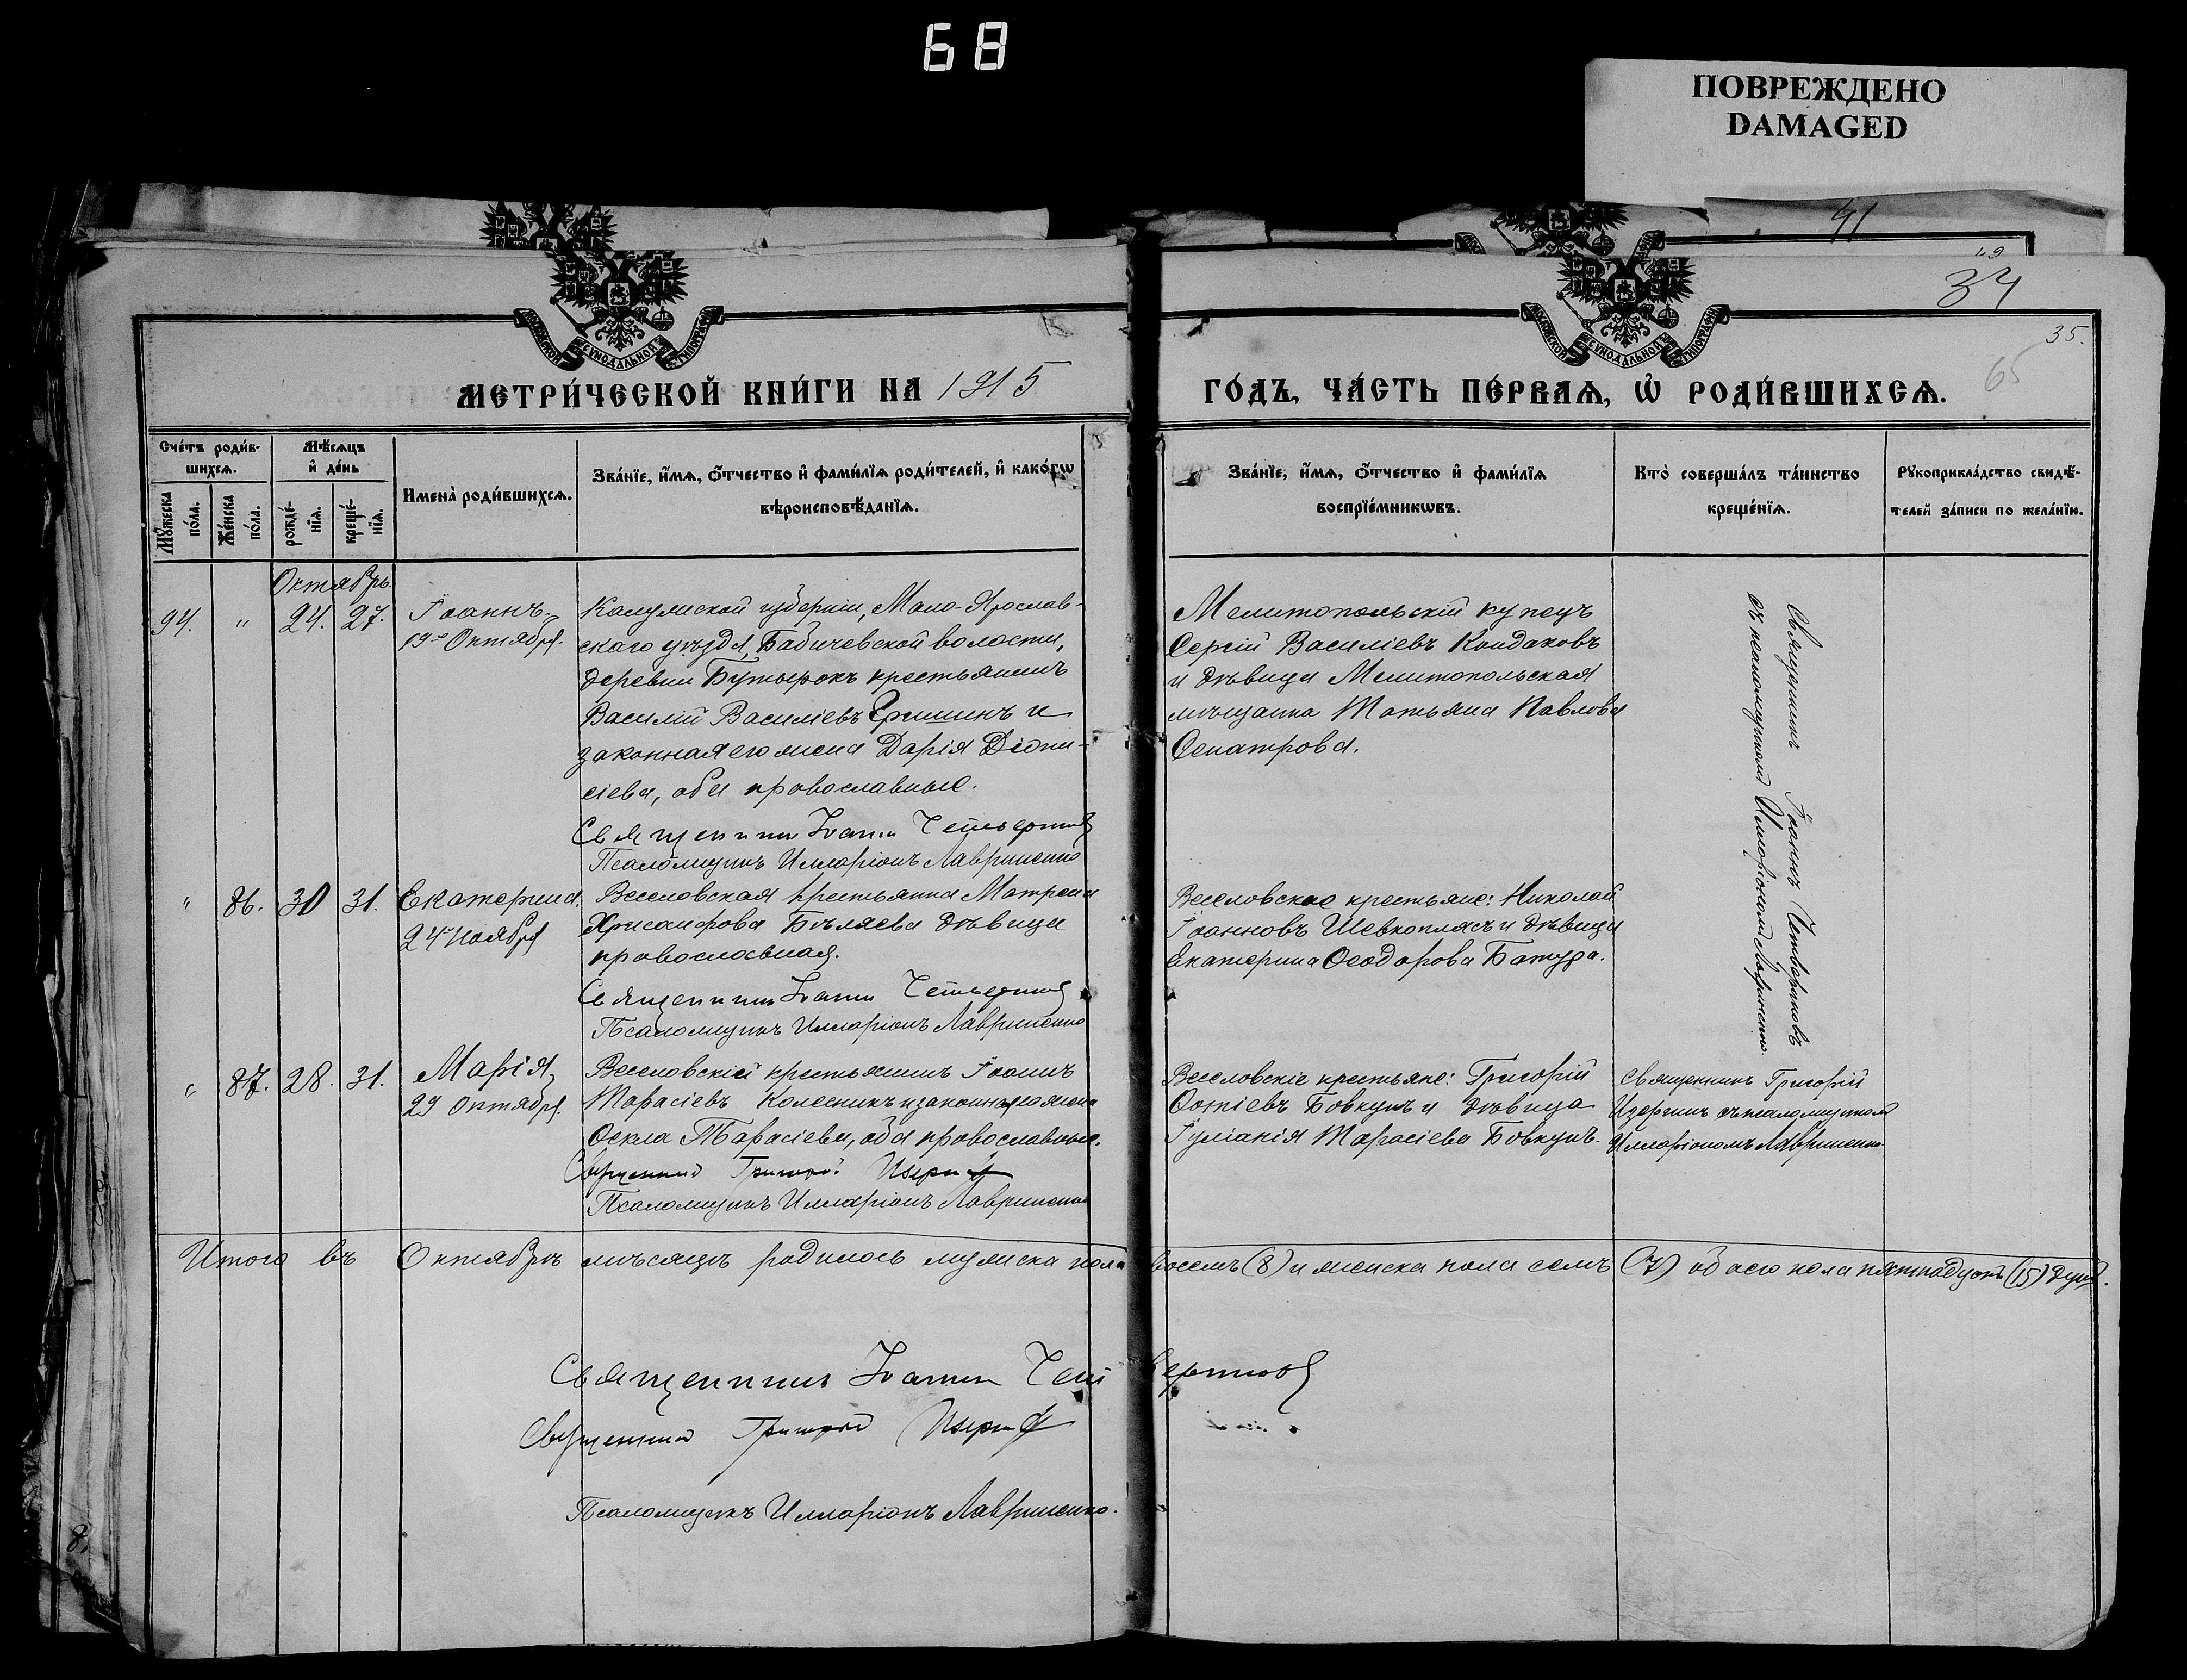 68
ПОВРЕЖДЕНО
DAMAGED
41
49
34
35.
65
МОСКОВСКОЙ СУНОДАЛЬНОЙ ТИПОГРАФІИ
МОСКОВСКОЙ СУНОДАЛЬНОЙ ТИПОГРАФІИ
МЕТРИ́ЧЕСКОЙ КНИ́ГИ НА 1915
ГО́ДЪ, ЧА́СТЬ ПЕ́РВАѦ, Ѡ҆ РОДИ́ВШИХСѦ.
Сче́тъ роди́в-
шихсѧ.
Мꙋ́жеска
по́ла.
Же́нска
по́ла.
Мѣ́сѧцъ
и҆ де́нь
рожде́-
нїѧ.
креще́-
нїѧ.
Имена̀ роди́вшихсѧ.
Зва́нїе, и҆́мѧ, ѻ҆́тчество и҆ фами́лїѧ роди́телей, и҆ како́гѡ
вѣроисповѣ́данїѧ.
Зва́нїе, и҆́мѧ, ѻ҆́тчество и҆ фами́лїѧ
воспрїе́мникѡвъ.
Кто̀ соверша́лъ та́инство
креще́нїѧ.
Рꙋкоприкла́дство свидѣ́-
телей за́писи по жела́нїю.
Октябрь.
94. " 24. 27.
Іоаннъ,
19го Октября.
Калужской губерніи, Мало-Ярослав-
скаго уѣзда, Бабичевской волости,
деревни Бутырокъ крестьянинъ
Василій Василіевъ Ершинъ и
законная его жена Дарія Діони-
сіева, оба православные.
Священникъ Іоаннъ Четвериковъ
Псаломщикъ Илларіонъ Лавриненко
Мелитопольскій купецъ
Сергій Василіевъ Кондаковъ
и дѣвица Мелитопольская
мѣщанка Татьяна Павлова
Сенатрова.
Священникъ Іоаннъ Четвериковъ
съ псаломщикомъ Илларіономъ Лавриненко.
" 86. 30 31.
Екатерина.
24 Ноября
Веселовская крестьянка Матрона
Хрисанфова Бѣляева дѣвица
православная.
Священникъ Іоаннъ Четвериковъ
Псаломщикъ Илларіонъ Лавриненко
Веселовскіе крестьяне: Николай
Іоанновъ Шевкоплясъ и дѣвица
Екатерина Ѳеодорова Батура.
" 87. 28. 31.
Марія,
29 Октября.
Веселовскій крестьянинъ Іоаннъ
Тарасіевъ Колесникъ и законная его жена
Ѳекла Тарасіева, оба православные.
Священникъ Григорій
Псаломщикъ Илларіонъ Лавриненко
Веселовскіе крестьяне: Григорій
Фотіевъ Бовкунъ и дѣвица
Іуліанія Тарасіева Бовкунъ.
Священникъ Григорій
съ псаломщикомъ
Илларіономъ Лавриненко
Итого въ Октябрѣ мѣсяцѣ родилось мужеска пола восемь (8) и женска пола семь (7) обоего пола пятнадцать (15) душъ.
Священникъ Іоаннъ Четвериковъ
Священникъ Григорій
Псаломщикъ Илларіонъ Лавриненко.